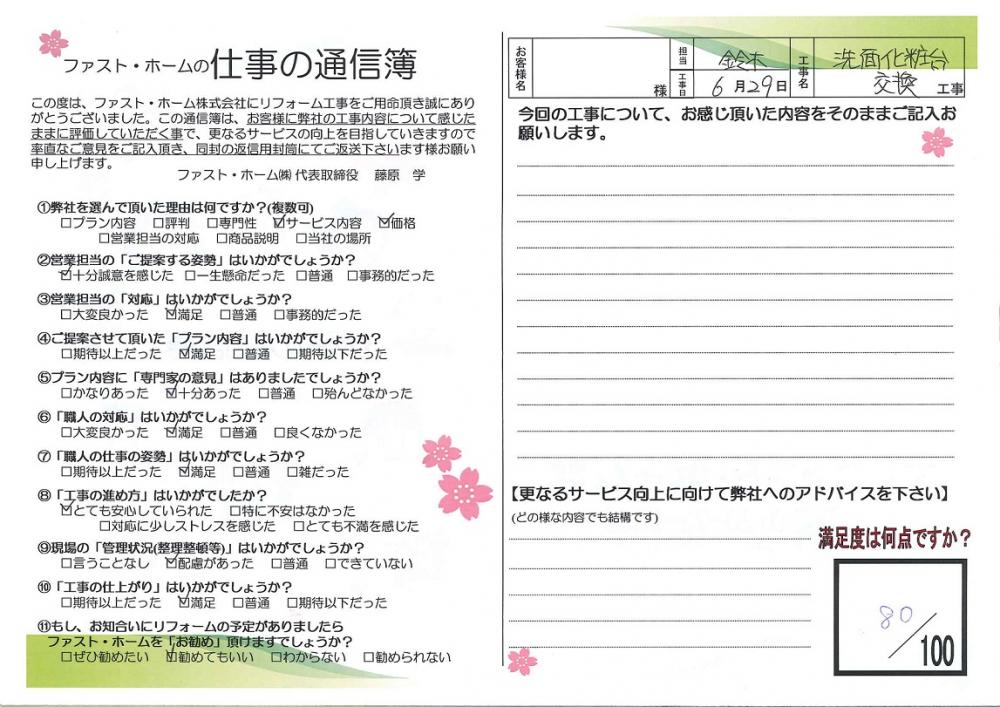 ファスト・ホームの仕事の通信簿
この度は、ファスト・ホーム株式会社にリフォーム工事をご用命頂き誠にあり
がとうございました。この通信簿は、お客様に弊社の工事内容について感じた
ままに評価していただく事で、更なるサービスの向上を目指していきますので
率直なご意見をご記入頂き、同封の返信用封筒にてご返送下さいます様お願い
申し上げます。
ファスト・ホーム㈱ 代表取締役 藤原 学
①弊社を選んで頂いた理由は何ですか？(複数可)
□プラン内容 □評判 □専門性 ☑サービス内容 ☑価格
□営業担当の対応 □商品説明 □当社の場所
②営業担当の「ご提案する姿勢」はいかがでしょうか？
☑十分誠意を感じた □一生懸命だった □普通 □事務的だった
③営業担当の「対応」はいかがでしょうか？
□大変良かった ☑満足 □普通 □事務的だった
④ご提案させて頂いた「プラン内容」はいかがでしょうか？
□期待以上だった ☑満足 □普通 □期待以下だった
⑤プラン内容に「専門家の意見」はありましたでしょうか？
□かなりあった ☑十分あった □普通 □殆んどなかった
⑥「職人の対応」はいかがでしょうか？
□大変良かった ☑満足 □普通 □良くなかった
⑦「職人の仕事の姿勢」はいかがでしょうか？
□期待以上だった ☑満足 □普通 □雑だった
⑧「工事の進め方」はいかがでしたか？
☑とても安心していられた □特に不安はなかった
□対応に少しストレスを感じた □とても不満を感じた
⑨現場の「管理状況(整理整頓等)」はいかがでしょうか？
□言うことなし ☑配慮があった □普通 □できていない
⑩「工事の仕上がり」はいかがでしょうか？
□期待以上だった ☑満足 □普通 □期待以下だった
⑪もし、お知合いにリフォームの予定がありましたら
ファスト・ホームを「お勧め」頂けますでしょうか？
□ぜひ勧めたい ☑勧めてもいい □わからない □勧められない
お客様名 様 担当 鈴木 工事日 6月29日 工事名 洗面化粧台
交換 工事
今回の工事について、お感じ頂いた内容をそのままご記入お
願いします。
【更なるサービス向上に向けて弊社へのアドバイスを下さい】
(どの様な内容でも結構です)
満足度は何点ですか？
80/100